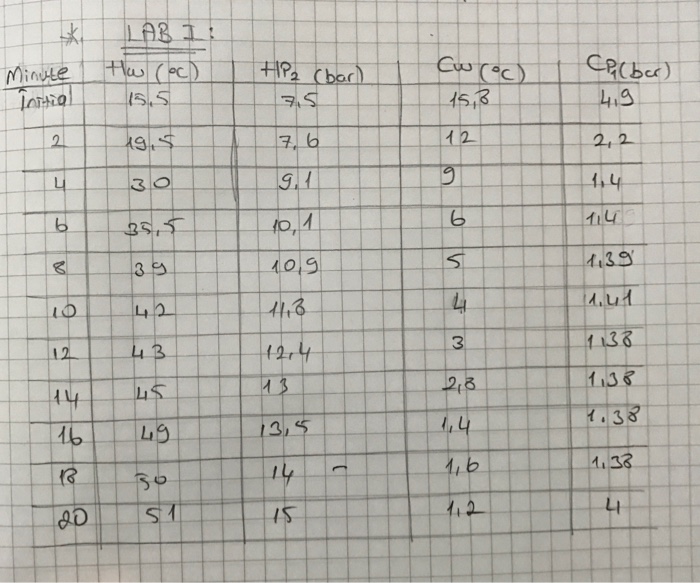 * LAB I:
Minute Hw (°C) HP2 (bar) Cw (°C) CP1 (bar)
İnitial 15,5 7,5 15,8 4,9
2 19,5 7,6 12 2,2
4 30 9,1 9 1,4
6 35,5 10,1 6 1,4
8 39 10,9 5 1,39
10 42 11,8 4 1.41
12 43 12,4 3 1,38
14 45 13 2,8 1,38
16 49 13,5 1,4 1.38
18 50 14 - 1,6 1,38
20 51 15 1,2 4